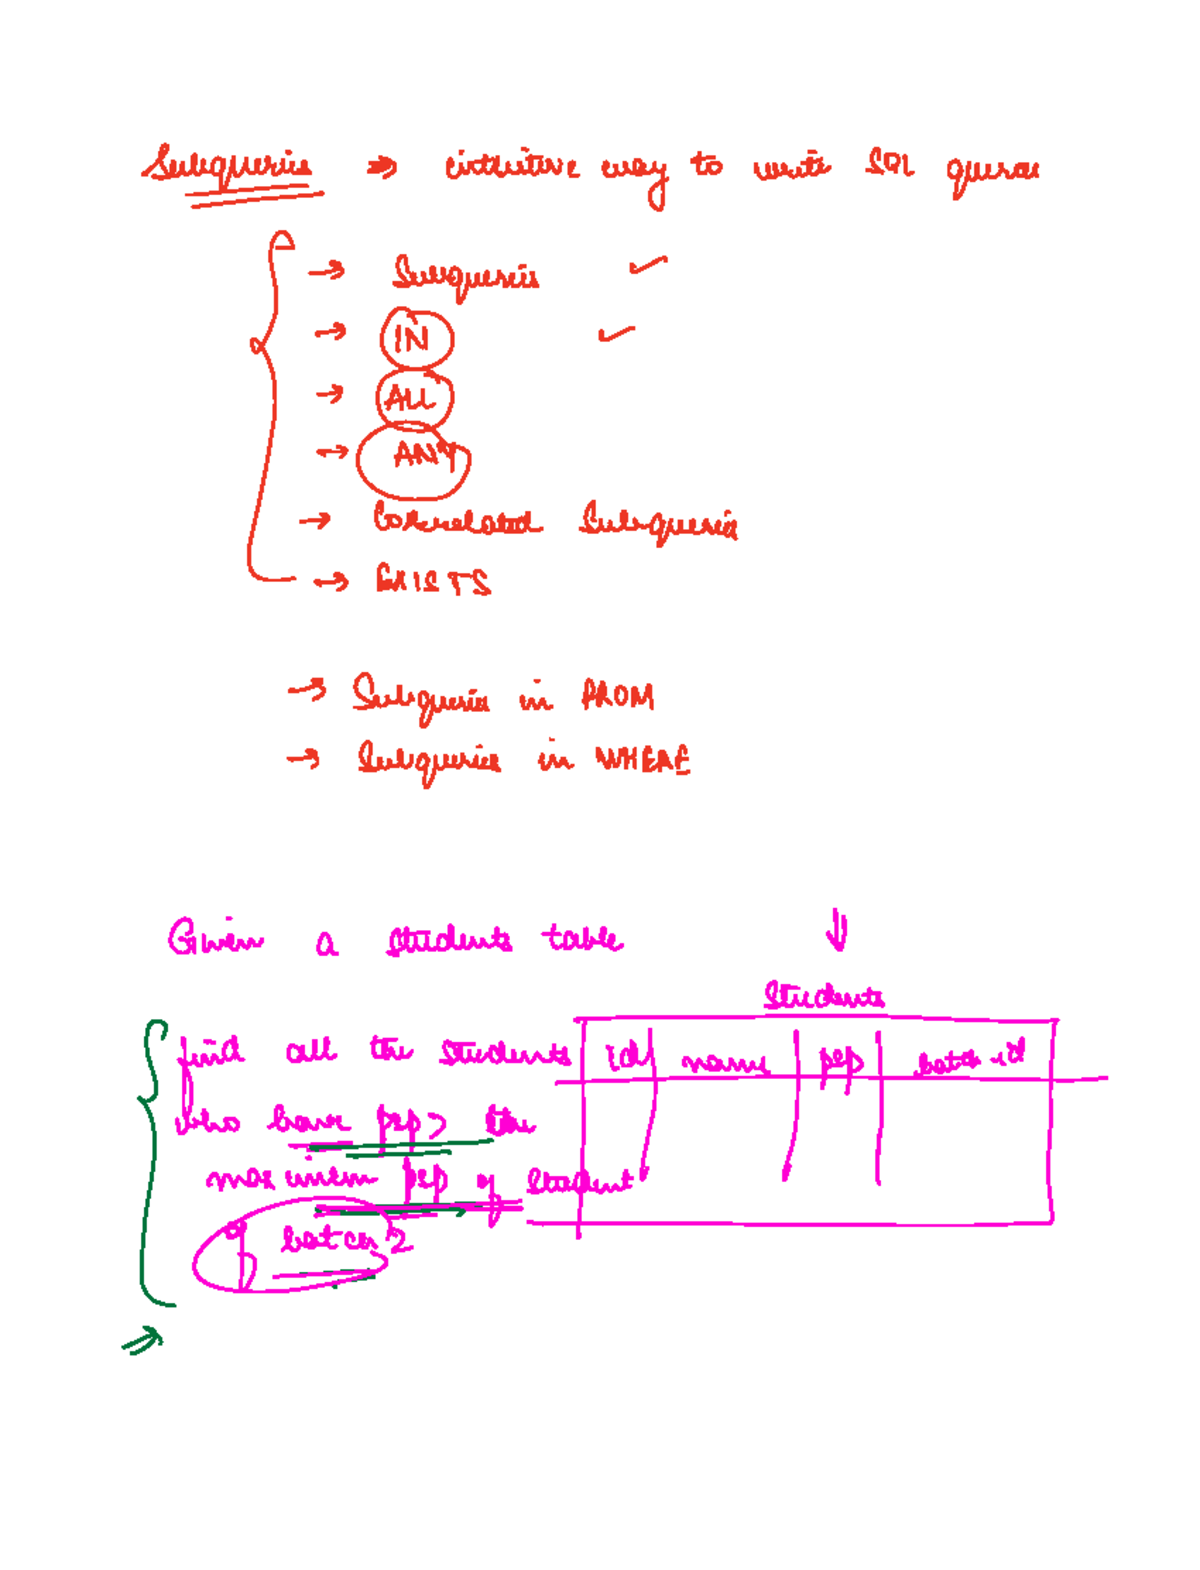 Subqueries ⇒ intuitive way to write SQL queries
→ Subqueries ✓
→ IN ✓
→ ALL
→ ANY
→ Correlated Subqueries
→ EXISTS
→ Subqueries in FROM
→ Subqueries in WHERE
Given a students table
Students
id name psp batch_id
find all the students
who have psp > the
maximum psp of student
of batch 2